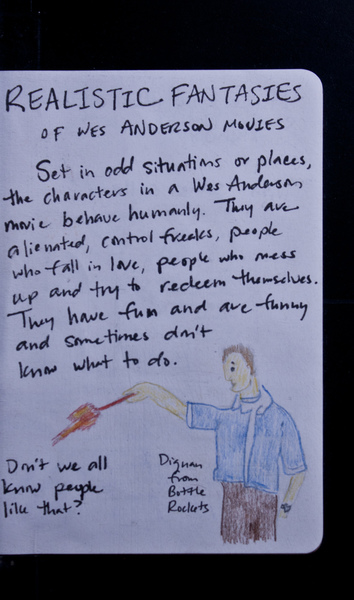 REALISTIC FANTASIES
OF WES ANDERSON MOVIES
Set in odd situations or places,
the characters in a Wes Anderson
movie behave humanly. They are
alienated, control freaks, people
who fall in love, people who mess
up and try to redeem themselves.
They have fun and are funny
and sometimes don't
know what to do.
Don't we all
know people
like that?
Dignan
from
Bottle
Rockets